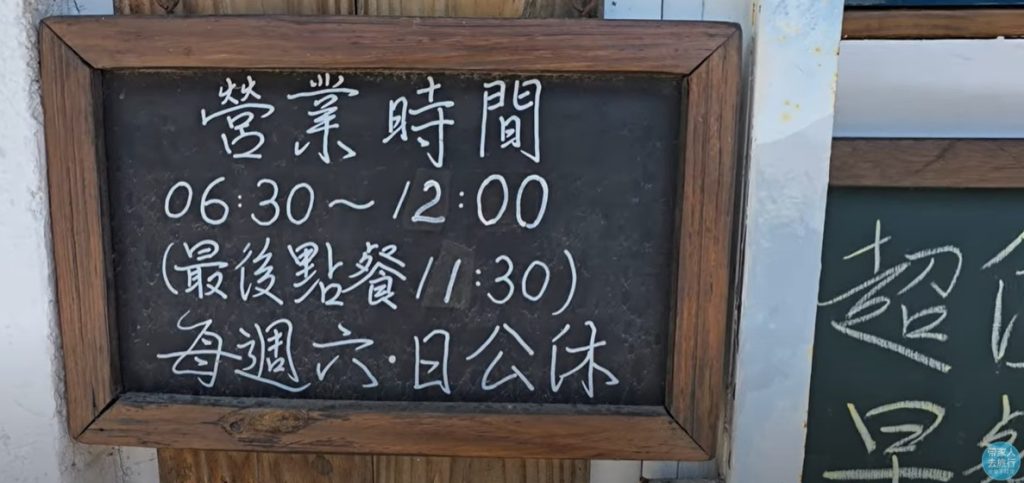 營業時間
06:30~12:00
(最後點餐11:30)
每週六·日公休
超
早
帶家人
去旅行